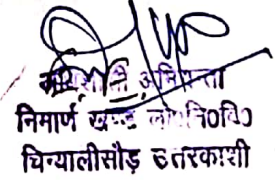 अधिशासी अभियन्ता
निमार्ण खण्ड लो०नि०वि०
चिन्यालीसौड़ उतरकाशी